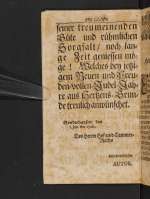 seiner treumeinenden
Güte und rühmlichen
Sorgfalt/ noch lan-
ge Zeit geniessen mö-
ge! Welches bey jetzi-
gem Neuen und Freu-
den-vollen Jubel-Jah-
re aus Hertzens-Grun-
de treulich anwünschet.
Sondershausen den
Des Herrn Hof- und Cammer-
Raths
AUTOR.